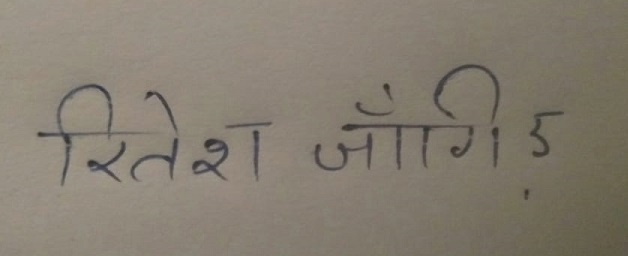 रितेश जाँगिड़